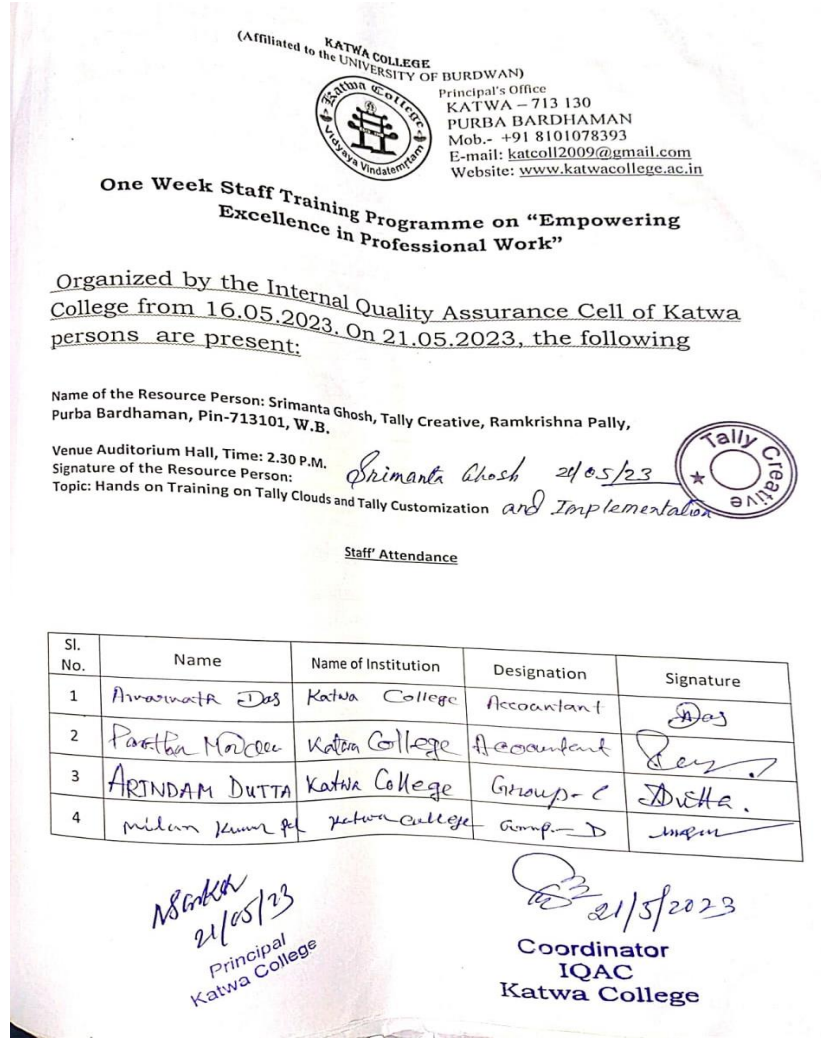 KATWA COLLEGE
(Affiliated to the UNIVERSITY OF BURDWAN)
Katwa College
Vidyaya Vindatemrtam
Principal's Office
KATWA – 713 130
PURBA BARDHAMAN
Mob.- +91 8101078393
E-mail: katcoll2009@gmail.com
Website: www.katwacollege.ac.in
One Week Staff Training Programme on “Empowering
Excellence in Professional Work”
Organized by the Internal Quality Assurance Cell of Katwa
College from 16.05.2023. On 21.05.2023, the following
persons are present:
Name of the Resource Person: Srimanta Ghosh, Tally Creative, Ramkrishna Pally,
Purba Bardhaman, Pin-713101, W.B.
Venue Auditorium Hall, Time: 2.30 P.M.
Signature of the Resource Person: Srimanta Ghosh 21/05/23
Tally Creative
Topic: Hands on Training on Tally Clouds and Tally Customization and Implementation
Staff' Attendance
Sl. No. Name Name of Institution Designation Signature
1 Amarnath Das Katwa College Accountant Das
2 Partha Katwa College Accountant
3 ARINDAM DUTTA Katwa College Group-C Dutta.
4 Milan Kumar Katwa College Group-D
21/05/23
Principal
Katwa College
21/5/2023
Coordinator
IQAC
Katwa College